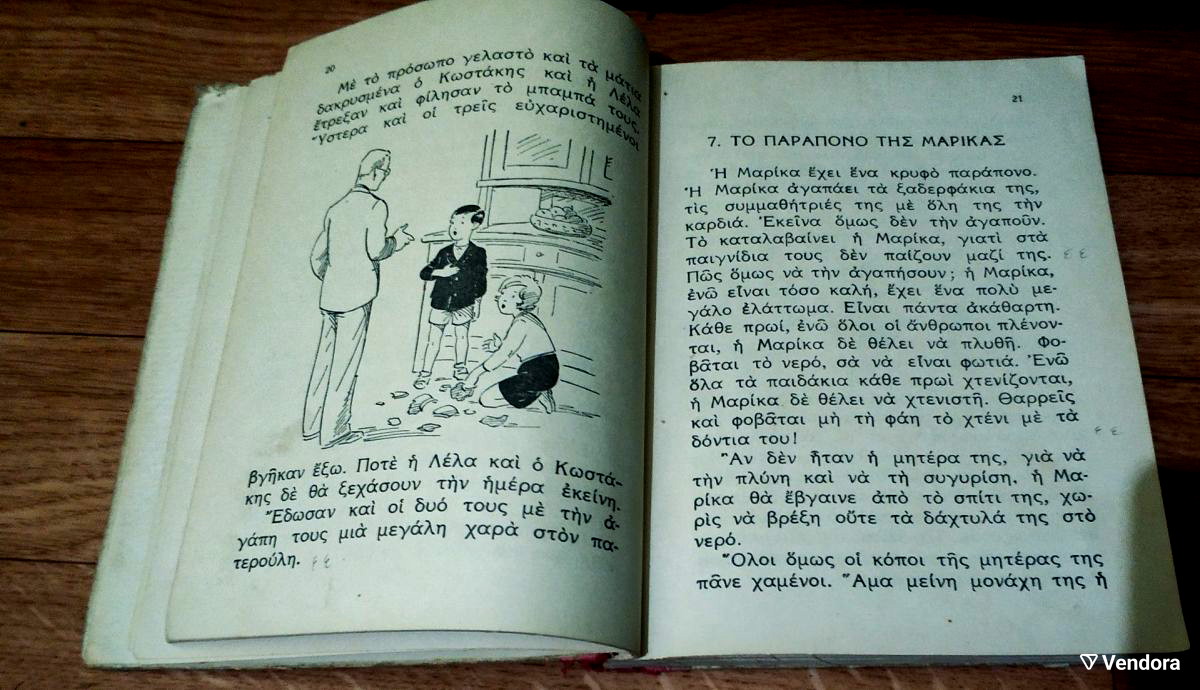 20
Μὲ τὸ πρόσωπο γελαστὸ καὶ τὰ μάτια
δακρυσμένα ὁ Κωστάκης καὶ ἡ Λέλα
ἔτρεξαν καὶ φίλησαν τὸ μπαμπά τους.
Ὕστερα καὶ οἱ τρεῖς εὐχαριστημένοι
βγῆκαν ἔξω. Ποτὲ ἡ Λέλα καὶ ὁ Κωστά-
κης δὲ θὰ ξεχάσουν τὴν ἡμέρα ἐκείνη.
Ἔδωσαν καὶ οἱ δυό τους μὲ τὴν ἀ-
γάπη τους μιὰ μεγάλη χαρὰ στὸν πα-
τερούλη.
21
7. ΤΟ ΠΑΡΑΠΟΝΟ ΤΗΣ ΜΑΡΙΚΑΣ
Ἡ Μαρίκα ἔχει ἕνα κρυφὸ παράπονο.
Ἡ Μαρίκα ἀγαπάει τὰ ξαδερφάκια της,
τὶς συμμαθήτριές της μὲ ὅλη της τὴν
καρδιά. Ἐκεῖνα ὅμως δὲν τὴν ἀγαποῦν.
Τὸ καταλαβαίνει ἡ Μαρίκα, γιατὶ στὰ
παιγνίδια τους δὲν παίζουν μαζί της.
Πῶς ὅμως νὰ τὴν ἀγαπήσουν; ἡ Μαρίκα,
ἐνῶ εἶναι τόσο καλή, ἔχει ἕνα πολὺ με-
γάλο ἐλάττωμα. Εἶναι πάντα ἀκάθαρτη.
Κάθε πρωί, ἐνῶ ὅλοι οἱ ἄνθρωποι πλένον-
ται, ἡ Μαρίκα δὲ θέλει νὰ πλυθῆ. Φο-
βᾶται τὸ νερό, σὰ νὰ εἶναι φωτιά. Ἐνῶ
ὅλα τὰ παιδάκια κάθε πρωὶ χτενίζονται,
ἡ Μαρίκα δὲ θέλει νὰ χτενιστῆ. Θαρρεῖς
καὶ φοβᾶται μὴ τὴ φάη τὸ χτένι μὲ τὰ
δόντια του!
Ἂν δὲν ἦταν ἡ μητέρα της, γιὰ νὰ
τὴν πλύνη καὶ νὰ τὴ συγυρίση, ἡ Μα-
ρίκα θὰ ἔβγαινε ἀπὸ τὸ σπίτι της, χω-
ρὶς νὰ βρέξη οὔτε τὰ δάχτυλά της στὸ
νερό.
Ὅλοι ὅμως οἱ κόποι τῆς μητέρας της
πᾶνε χαμένοι. Ἅμα μείνη μονάχη της ἡ
Vendora